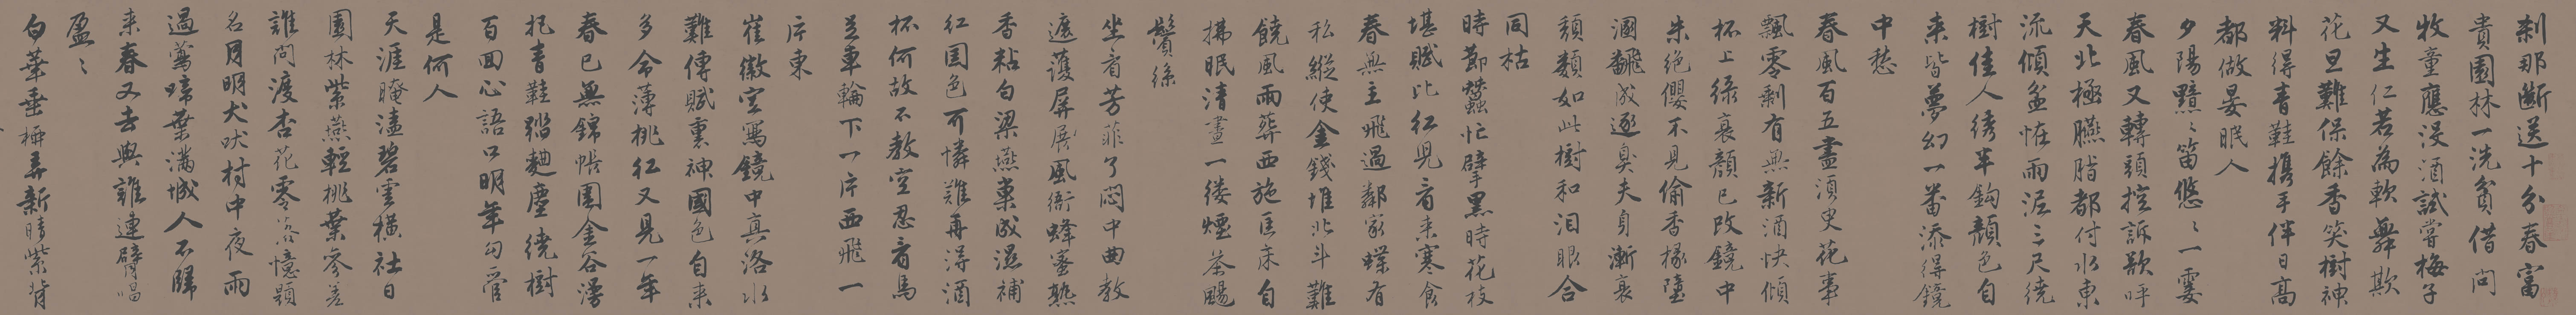 剎那斷送十分春富
貴園林一洗貧借問
牧童應沒酒試嘗梅子
又生仁若為軟舞欺
花旦難保餘香笑樹神
料得青鞋攜手伴日高
都做晏眠人
夕陽黯〻笛悠〻一霎
春風又轉頭控訴欲呼
天北極臙脂都付水東
流傾盆怪雨泥三尺繞
樹佳人繡半鈎顏色自
來皆夢幻一番添得鏡
中愁
春風百五盡須臾花事
飄零剩有無新酒快傾
杯上綠衰顏已改鏡中
朱絕纓不見偷香掾墮
溷翻成逐臭夫身漸衰
頹類如此樹和淚眼合
同枯
時節蠶忙擘黑時花枝
堪賦比紅兒看來寒食
春無主飛過鄰家蝶有
私縱使金錢堆北斗難
饒風雨葬西施匡床自
拂眠清晝一縷煙茶颺
鬢絲
坐看芳菲了悶中曲教
遮護屏展風衙蜂蜜熟
香粘白梁燕巢成濕補
紅國色可憐難再得酒
杯何故不教空忍看馬
足車輪下一片西飛一
片東
崔徽空寫鏡中真洛水
難傳賦裏神國色自來
多命薄桃紅又見一年
春已無錦帳圍金谷漫
把青鞋踏麯塵繞樹
百回心語口明年勾管
是何人
天涯晻溘碧雲橫社日
園林紫燕輕桃葉參差
誰問渡杏花零落憶題
名月明犬吠村中夜雨
過鶯啼葉滿城人不歸
來春又去與誰連臂唱
盈〻
白葦垂楊弄新晴紫背